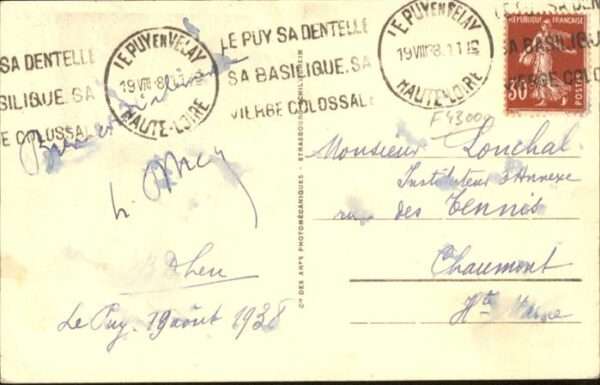 SA DENTELLE
SILIQUE, SA
E COLOSSALE
LE PUY EN VELAY
19 VIII 38
HAUTE-LOIRE
LE PUY SA DENTELLE
SA BASILIQUE, SA
VIERGE COLOSSALE
LE PUY EN VELAY
19 VIII 38 11
HAUTE-LOIRE
SA DEN
SA BASILIQUE
VIERGE COLO
REPUBLIQUE FRANÇAISE
30
POSTES
Cie DES ARTS PHOTOMÉCANIQUES - STRASBOURG-SCHILTIGHEIM
Monsieur Lonchal
Instituteur d'Annexe
rue des Tennis
Chaumont
Hte Marne
Le Puy. 19 août 1938